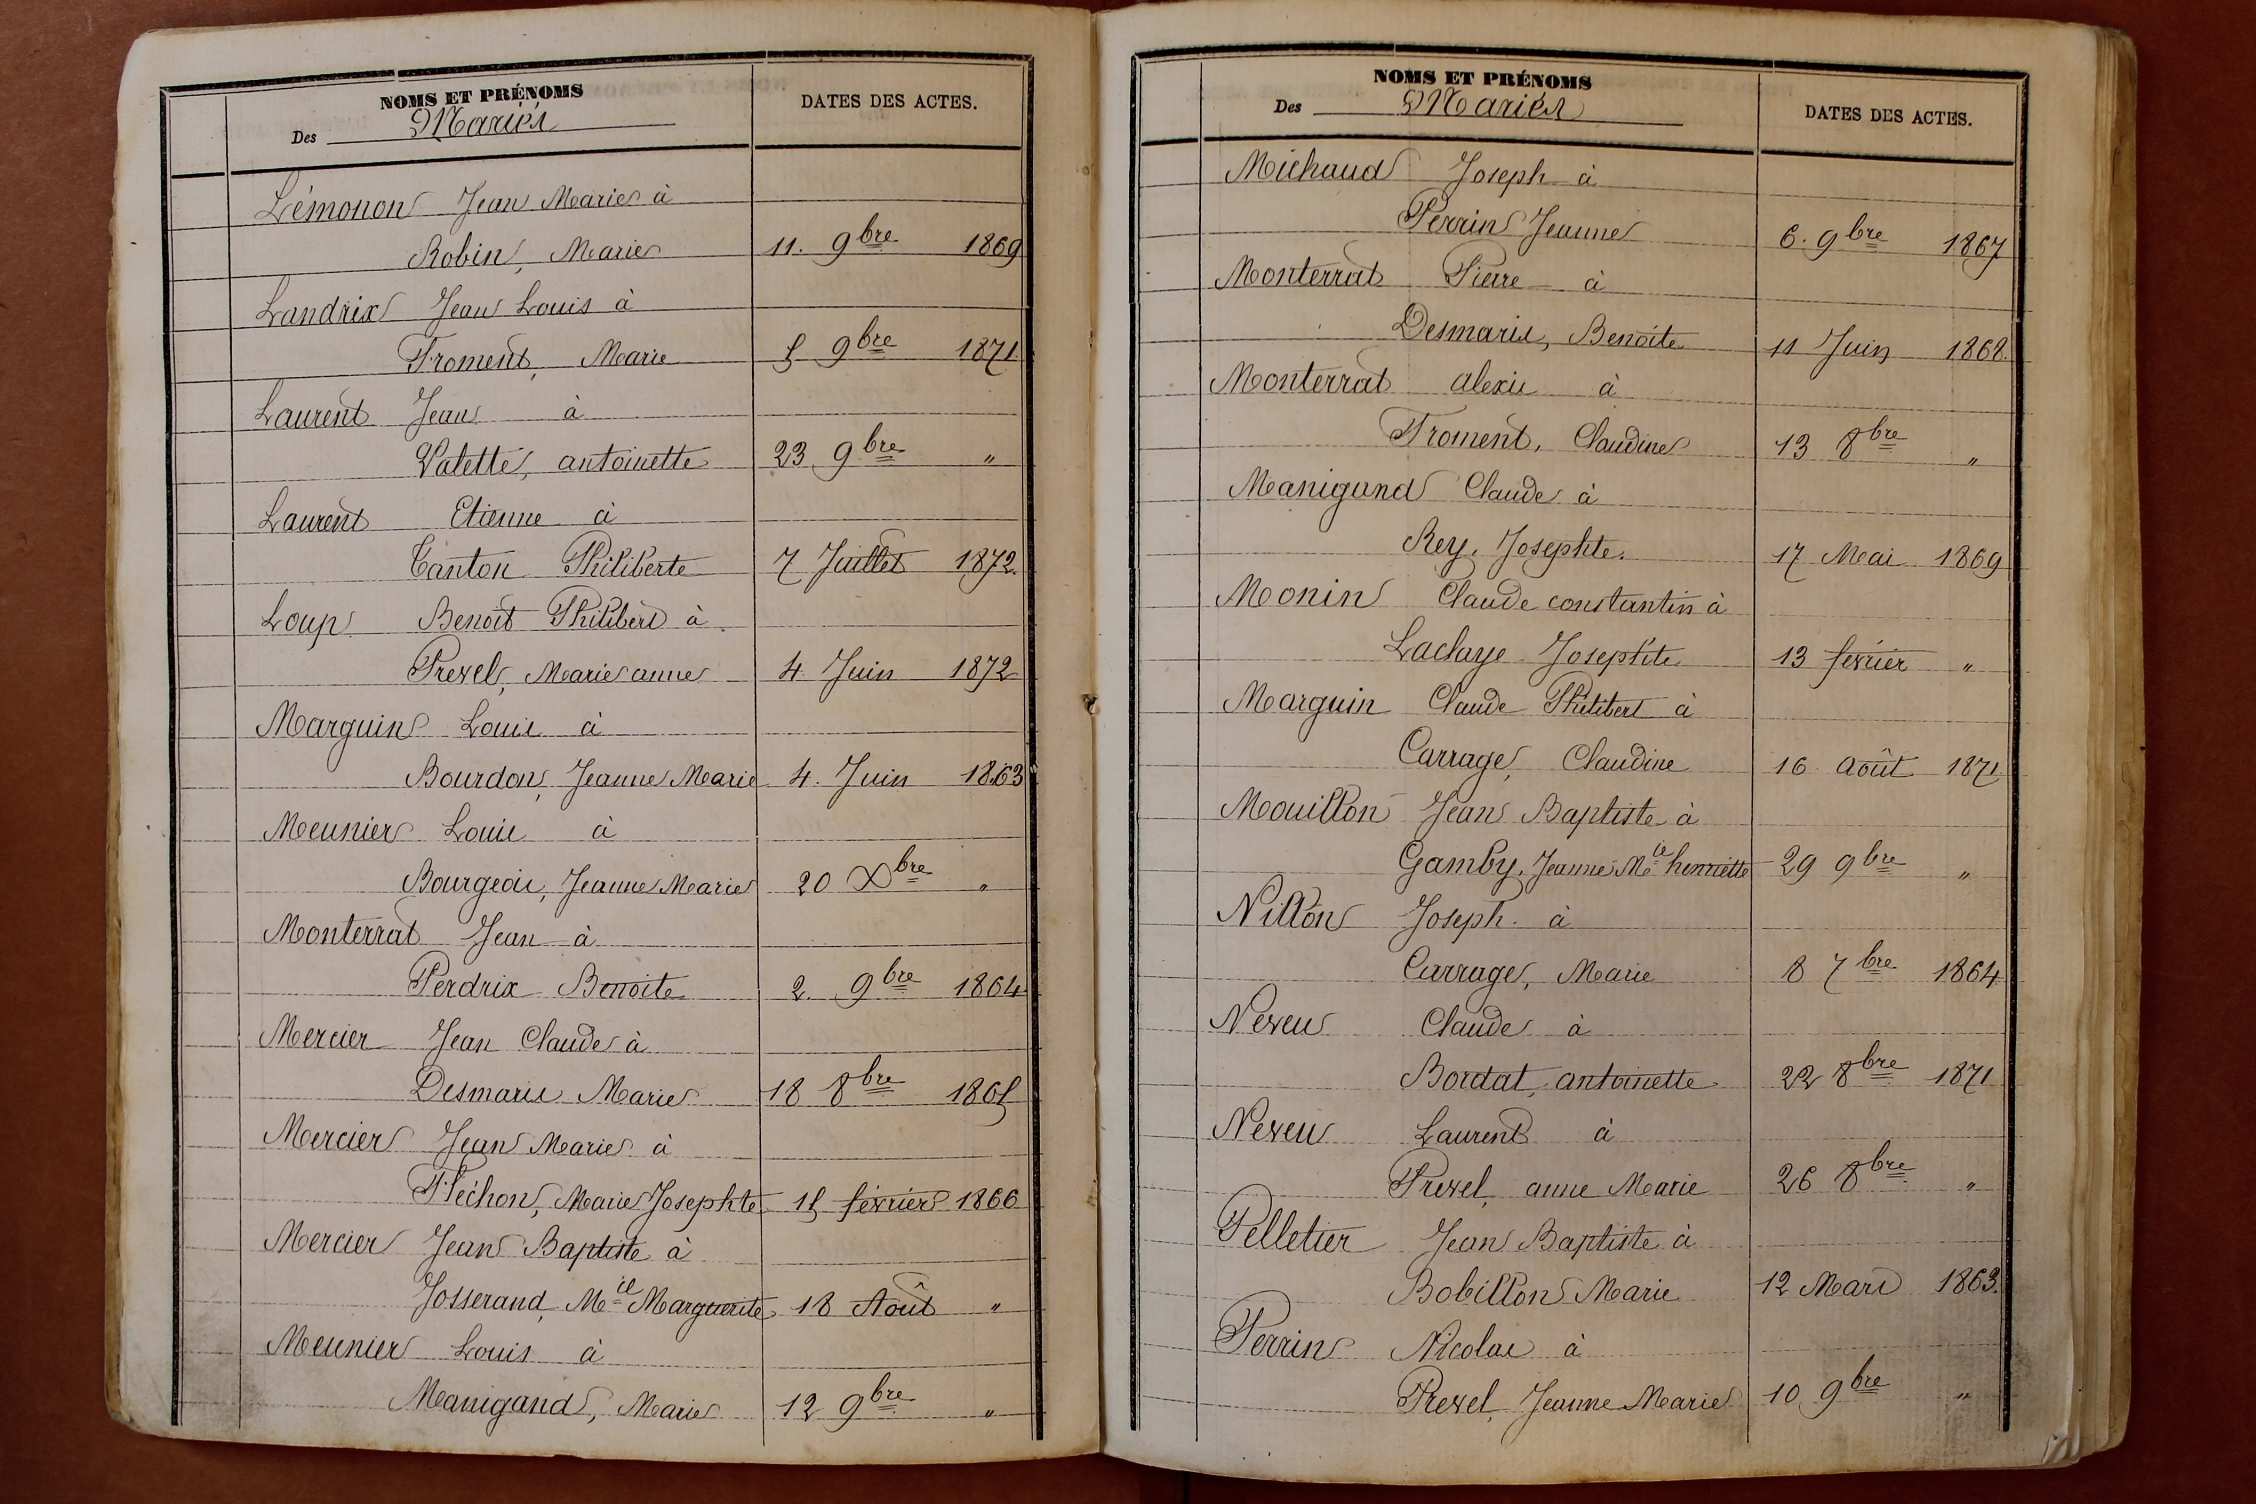 NOMS ET PRÉNOMS
Des Mariés
DATES DES ACTES.
Lémonon Jean Marie à
Robin, Marie 11. 9bre 1869
Landrix Jean Louis à
Froment, Marie 5 9bre 1871
Laurent Jean à
Valette, antoinette 23 9bre "
Laurent Etienne à
Canton Philiberte 7 Juillet 1872.
Loup Benoît Philibert à
Prevel, Marie anne 4. Juin 1872
Marguin Louis à
Bourdon, Jeanne Marie 4. Juin 1863
Meunier Louis à
Bourgeois, Jeanne Marie 20 Xbre "
Monterrat Jean à
Perdrix Benoite 2. 9bre 1864
Mercier Jean Claude à
Desmaris Marie 18 8bre 1865
Mercier Jean Marie à
Fléchon, Marie Josephte 15 février 1866
Mercier Jean Baptiste à
Josserand, Mie Marguerite 18 Août "
Meunier Louis à
Manigand, Marie 12 9bre "
NOMS ET PRÉNOMS
Des Mariés
DATES DES ACTES.
Michaud Joseph à
Perrin Jeanne 6. 9bre 1867
Monterrat Pierre à
Desmaris, Benoite 11 Juin 1868.
Monterrat alexis à
Froment, Claudine 13 8bre "
Manigand Claude à
Rey, Josephte. 17 Mai 1869
Monin Claude constantin à
Laclaye Josephte 13 février "
Marguin Claude Philibert à
Carrage, Claudine 16 Août 1871
Mouillon Jean Baptiste à
Gamby, Jeanne Mie henriette 29 9bre "
Nillon Joseph à
Carrage, Marie 8 7bre 1864
Neveu Claude à
Bordat, antoinette 22 8bre 1871
Neveu Laurent à
Prevel, anne Marie 26 8bre "
Pelletier Jean Baptiste à
Bobillon Marie 12 Mars 1863.
Perrin Nicolas à
Prevel, Jeanne Marie 10 9bre "